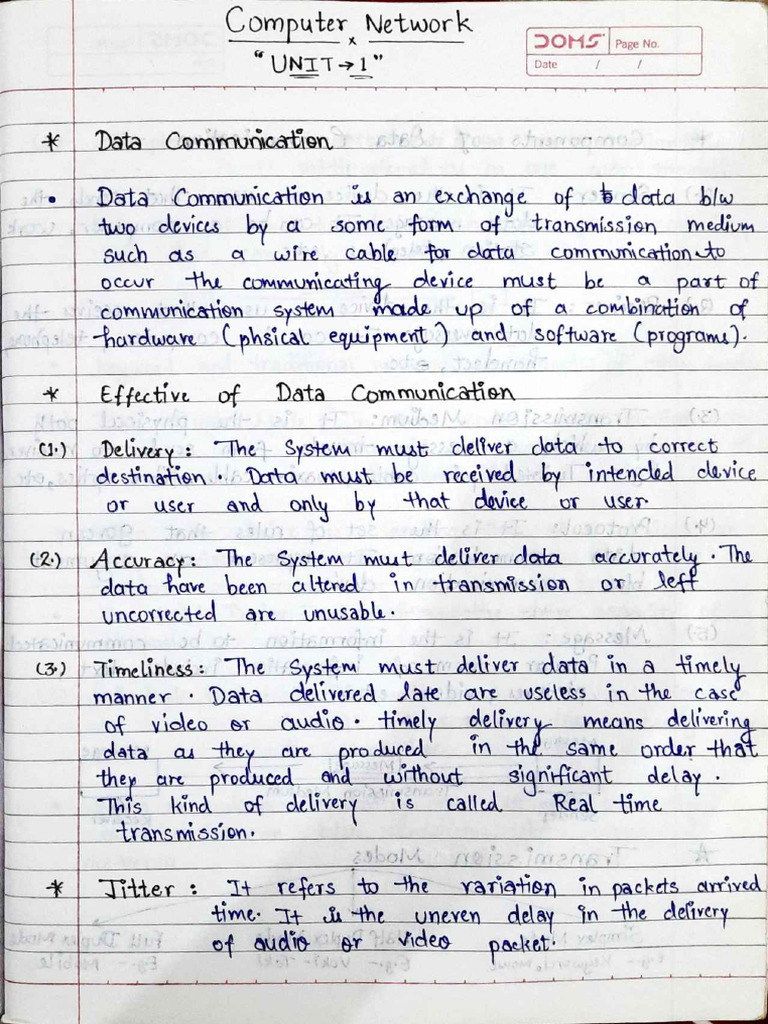 Computer Network
x
"UNIT → 1"
DOMS Page No.
Date / /
* Data Communication
• Data Communication is an exchange of data b/w
two devices by a some form of transmission medium
such as a wire cable for data communication to
occur the communicating device must be a part of
communication system made up of a combination of
hardware (phsical equipment) and software (programs).
* Effective of Data Communication
(1.) Delivery: The System must deliver data to correct
destination. Data must be received by intended device
or user and only by that device or user.
(2.) Accuracy: The System must deliver data accurately. The
data have been altered in transmission or left
uncorrected are unusable.
(3.) Timeliness: The System must deliver data in a timely
manner. Data delivered late are useless in the case
of video or audio. timely delivery means delivering
data as they are produced in the same order that
they are produced and without significant delay.
This kind of delivery is called Real time
transmission.
* Jitter: It refers to the variation in packets arrived
time. It is the uneven delay in the delivery
of audio or video packet.